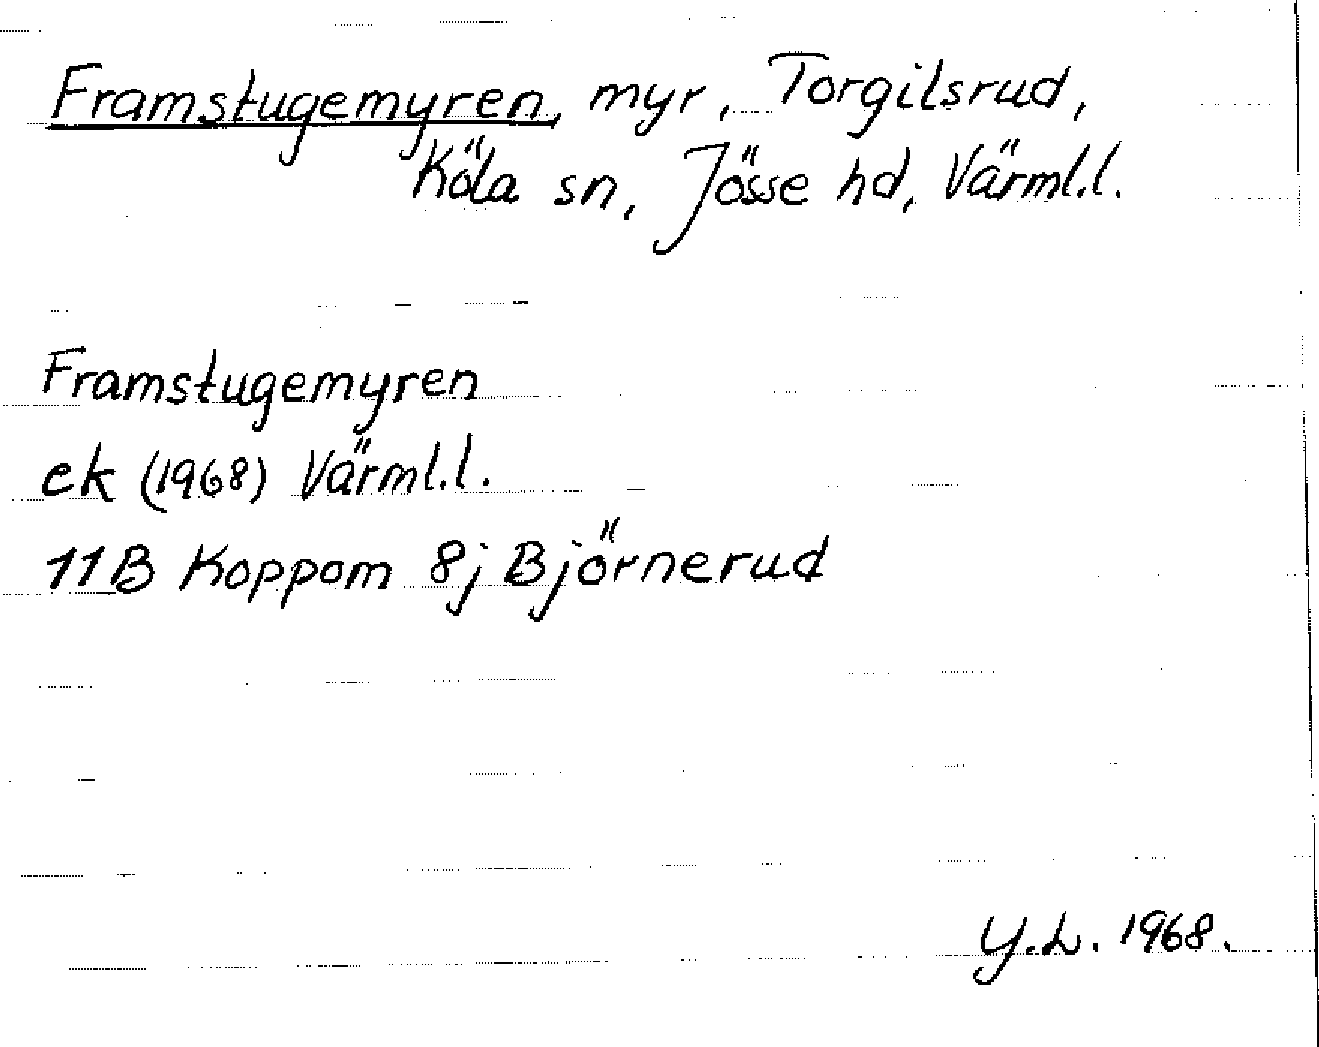 Framstugemyren, myr, Torgilsrud,
Köla sn, Jösse hd, Värml.l.
Framstugemyren
ek (1968) Värml.l.
11B Koppom 8j Björnerud
Y.L. 1968.